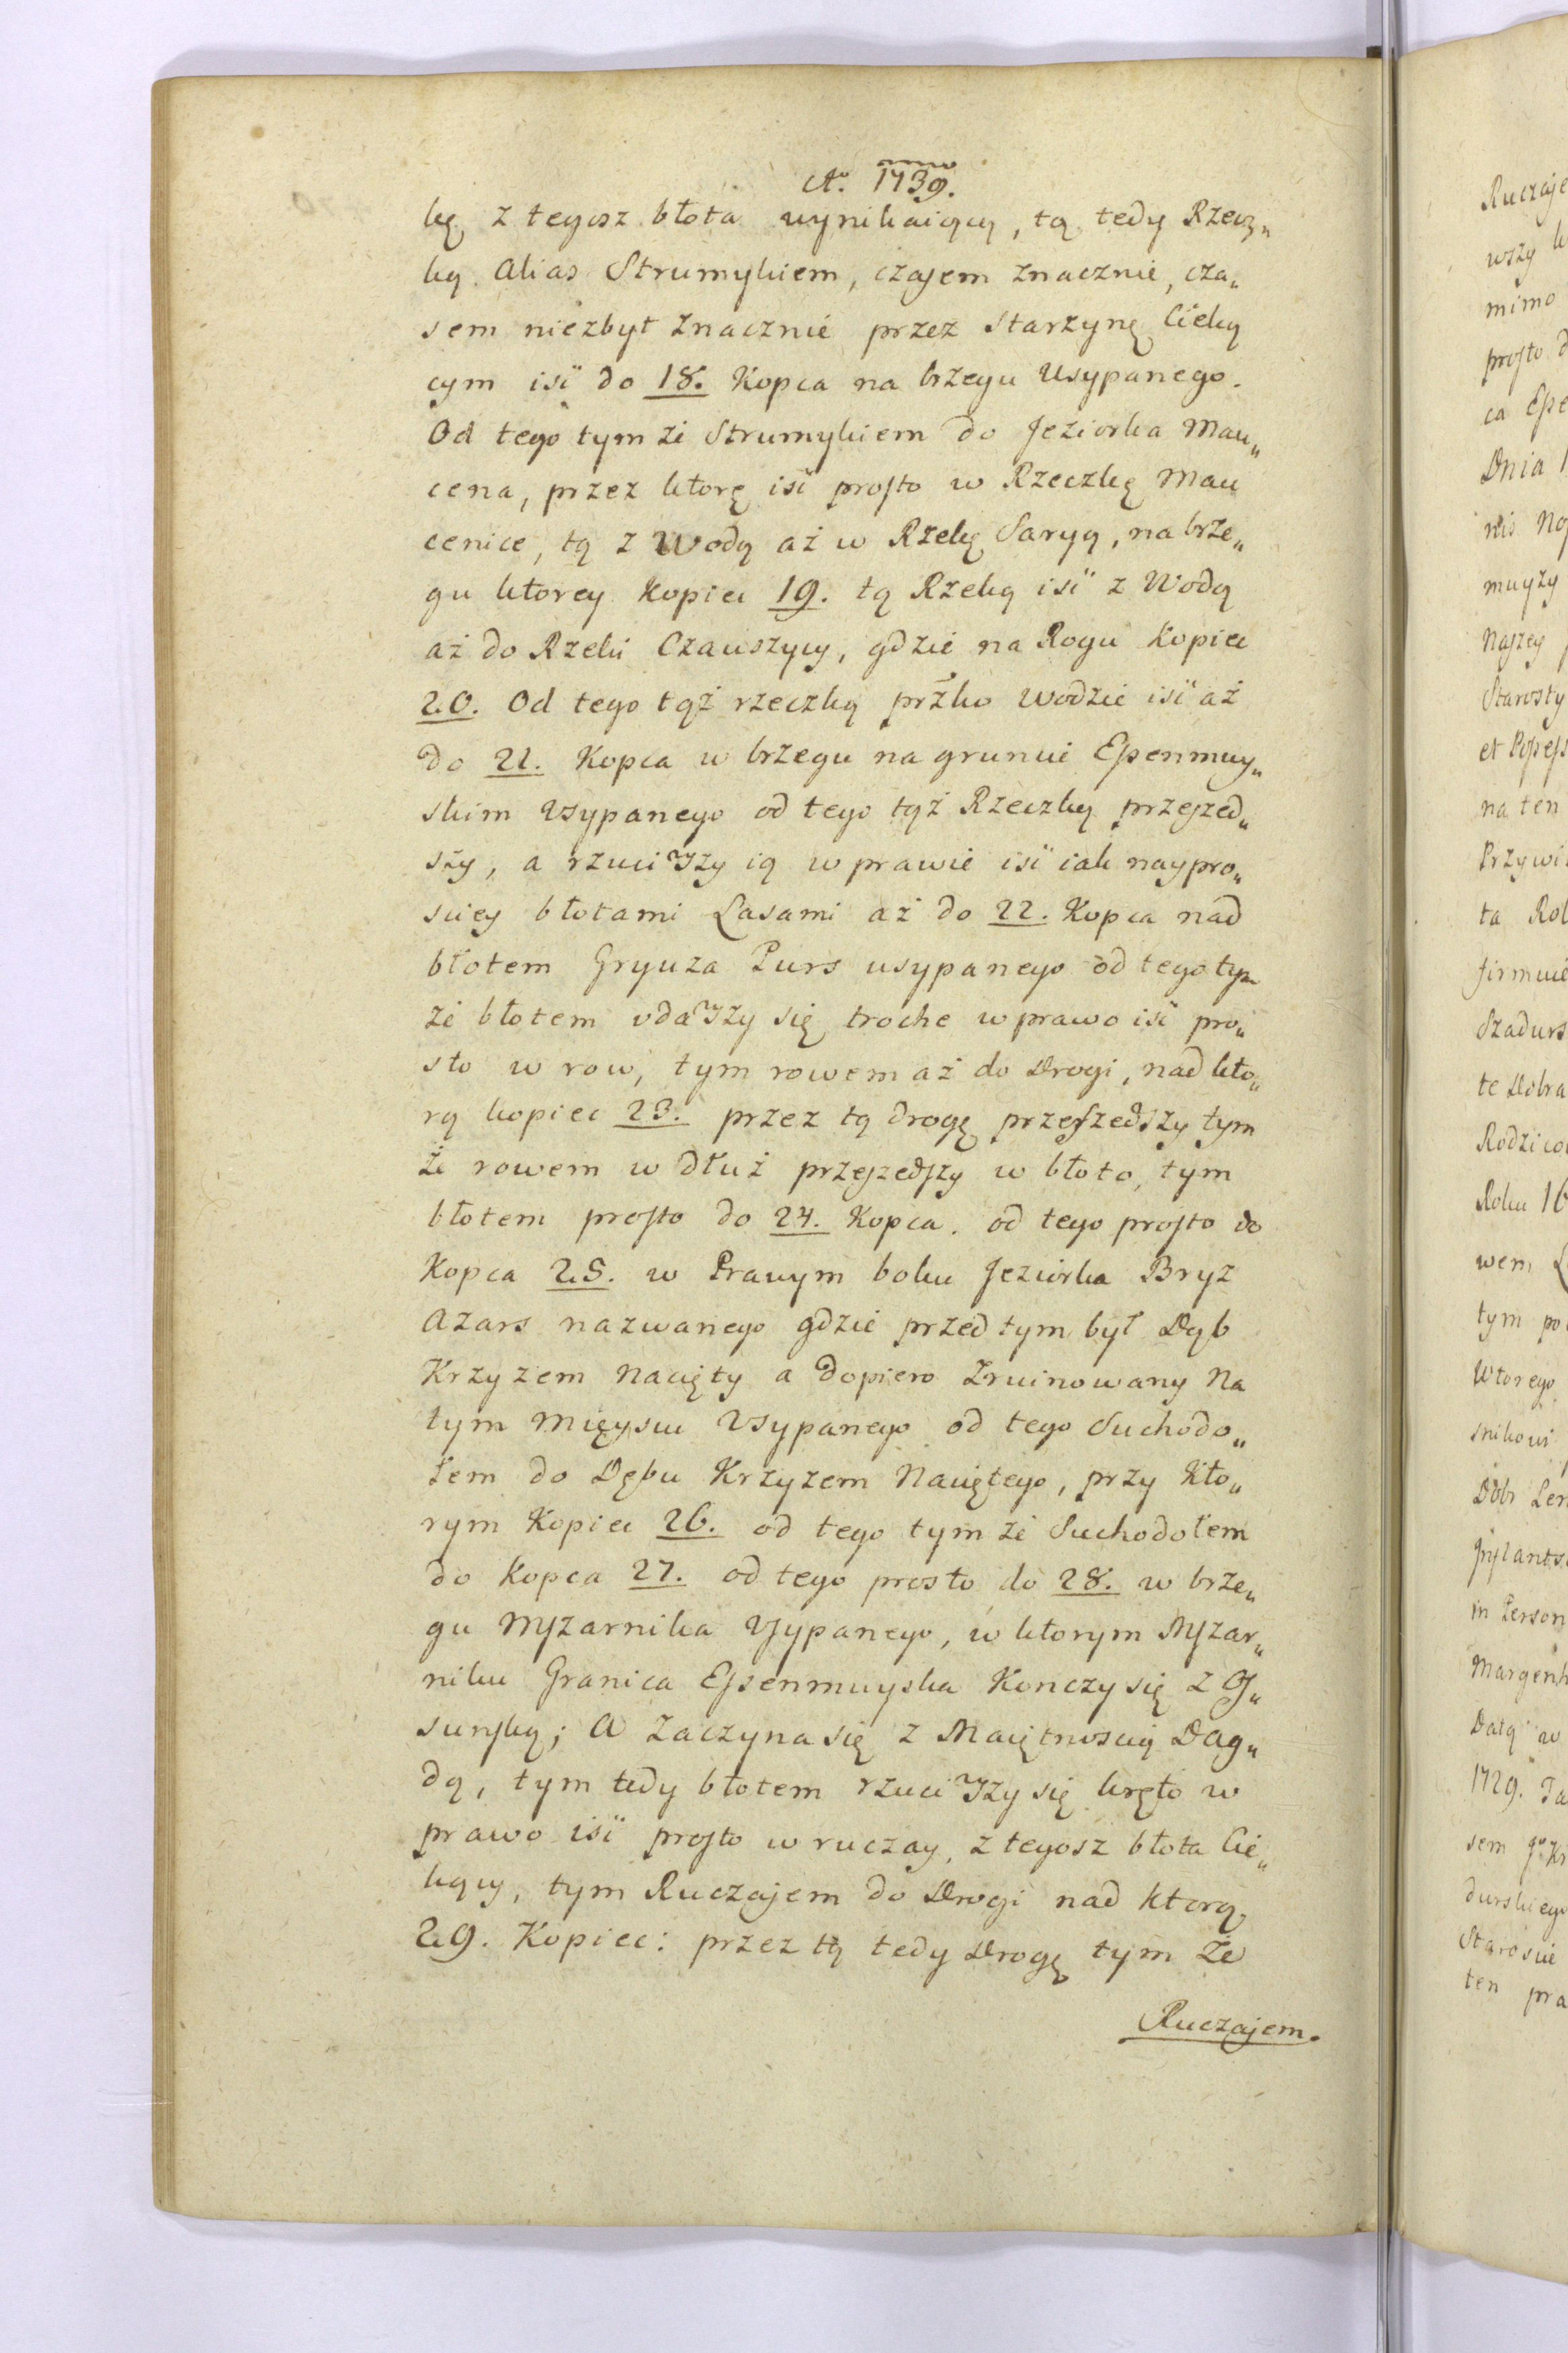 Aº. 1739.
kę z tegosz błota wynikaiącą, tą tedy Rzecz„
ką Alias Strumykiem, czasem znacznie, cza„
sem niezbyt znacznie przez Starzynę Cieką
cym isć do 18. Kopca na brzegu Usypanego.
Od tego tym że Strumykiem do Jeziorka Mau„
cena, przez ktorę isć prosto w Rzeczkę Mau
cenice, tą z Wodą aż w Rzekę Saryą, na brze„
gu ktorey Kopiec 19. tą Rzeką isć z Wodą
aż do Rzeki Czauszycy, gdzie na Rogu Kopiec
20. Od tego tąż rzeczką przko wodzie isć aż
do 21. Kopca w brzegu na gruncie Esenmuy„
skim Usypanego od tego tąż Rzeczką przeszed„
szy, a rzuciwszy ią w prawie isć iak naypro„
sciey błotami Lasami aż do 22. Kopca nad
błotem Gryuza Purs usypanego od tego tym
że błotem udawszy się troche w prawo isć pro„
sto w row, tym rowem aż do Drogi, nad kto„
rą kopiec 23. przez tą drogę przeszedszy tym
że rowem w dłuż przeszedszy w błoto, tym
błotem prosto do 24. Kopca. od tego prosto do
Kopca 25. w Prawym boku Jeziorka Bryz
Azars nazwanego gdzie przed tym był Dąb
Krzyzem nacięty a dopiero Zruinowany na
tym Mięyscu Usypanego od tego Suchodo„
łem do Dębu Krzyzem Naciętego, przy kto„
rym Kopiec 26. od tego tym że Suchodołem
do Kopca 27. od tego prosto do 28. w brze„
gu Mszarnika Usypanego, w ktorym Mszar„
niku Granica Esenmuyska Konczy się z O„
sunską; A Zaczyna się z Maiętnoscią Dag„
dą, tym tedy błotem rzuciwszy się kręto w
prawo isć prosto w ruczay, z tegosz błota Cie„
kący, tym Ruczajem do Drogi nad ktorą
29. Kopiec: przez tą tedy Drogę tym że
Ruczajem.
Ruczaje
wszy
mimo
prosto d
ca
Dnia 1
nis
muyzy
Naszey
Starosty
et Possess
na ten
Przywi
ta Rob
firmuie
Szadurs
te Dobra
Rodzico
Roku 16
wem
tym po
Wtorego
snikowi
Dobr Len
Inflants
in Person
Margenh
Datą w
1729. Ta
sem
durskiego
Staroscie
ten pra